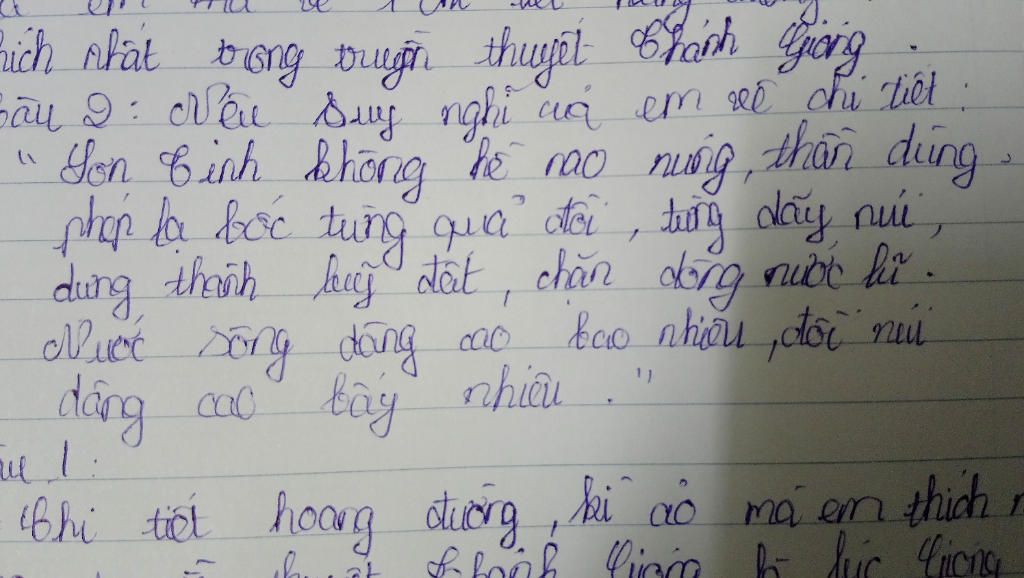 hích nhất trong truyện thuyết Thánh Gióng .
Câu 2 : Nêu suy nghĩ của em về chi tiết :
" Sơn Tinh không hề nao núng, thần dùng
phép lạ bốc từng quả đồi , từng dãy núi ,
dựng thành luỹ đất , chặn dòng nước lũ .
Nước sông dâng cao bao nhiêu , đồi núi
dâng cao bấy nhiêu . "
âu 1 :
Chi tiết hoang đường , kì ảo mà em thích n
Thánh Gióng là lúc Gióng